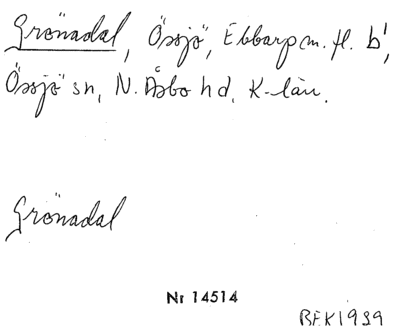 Grönadal, Össjö, Ebbarp m. fl. b',
Össjö sn, N. Åsbo hd, K-län.
Grönadal
Nr 14514
BEK 1939